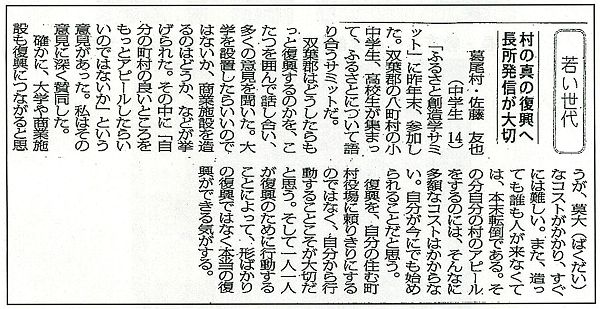 若い世代
村の真の復興へ
長所発信が大切
葛尾村・佐藤　友也
（中学生　14）
「ふるさと創造学サミ
ット」に昨年末、参加し
た。双葉郡の八町村の小
中学生、高校生が集まっ
て、ふるさとについて語
り合うサミットだ。
双葉郡はどうしたらも
っと復興するのかを、こ
たつを囲んで話し合い、
多くの意見を聞いた。大
学を設置したらいいので
はないか、商業施設を造
るのはどうか、などが挙
げられた。その中に「自
分の町村の良いところを
もっとアピールしたらい
いのではないか」という
意見があった。私はその
意見に深く賛同した。
確かに、大学や商業施
設も復興につながると思
うが、莫大（ばくだい）
なコストがかかり、すぐ
には難しい。また、造っ
ても誰も人が来なくて
は、本末転倒である。そ
の分自分の村のアピール
をするのには、そんなに
多額なコストはかからな
い。自分が今にでも始め
られることだと思う。
復興を、自分の住む町
村役場に頼りきりにする
のではなく、自分から行
動することこそが大切だ
と思う。そして一人一人
が復興のために行動する
ことによって、形ばかり
の復興ではなく本当の復
興ができる気がする。